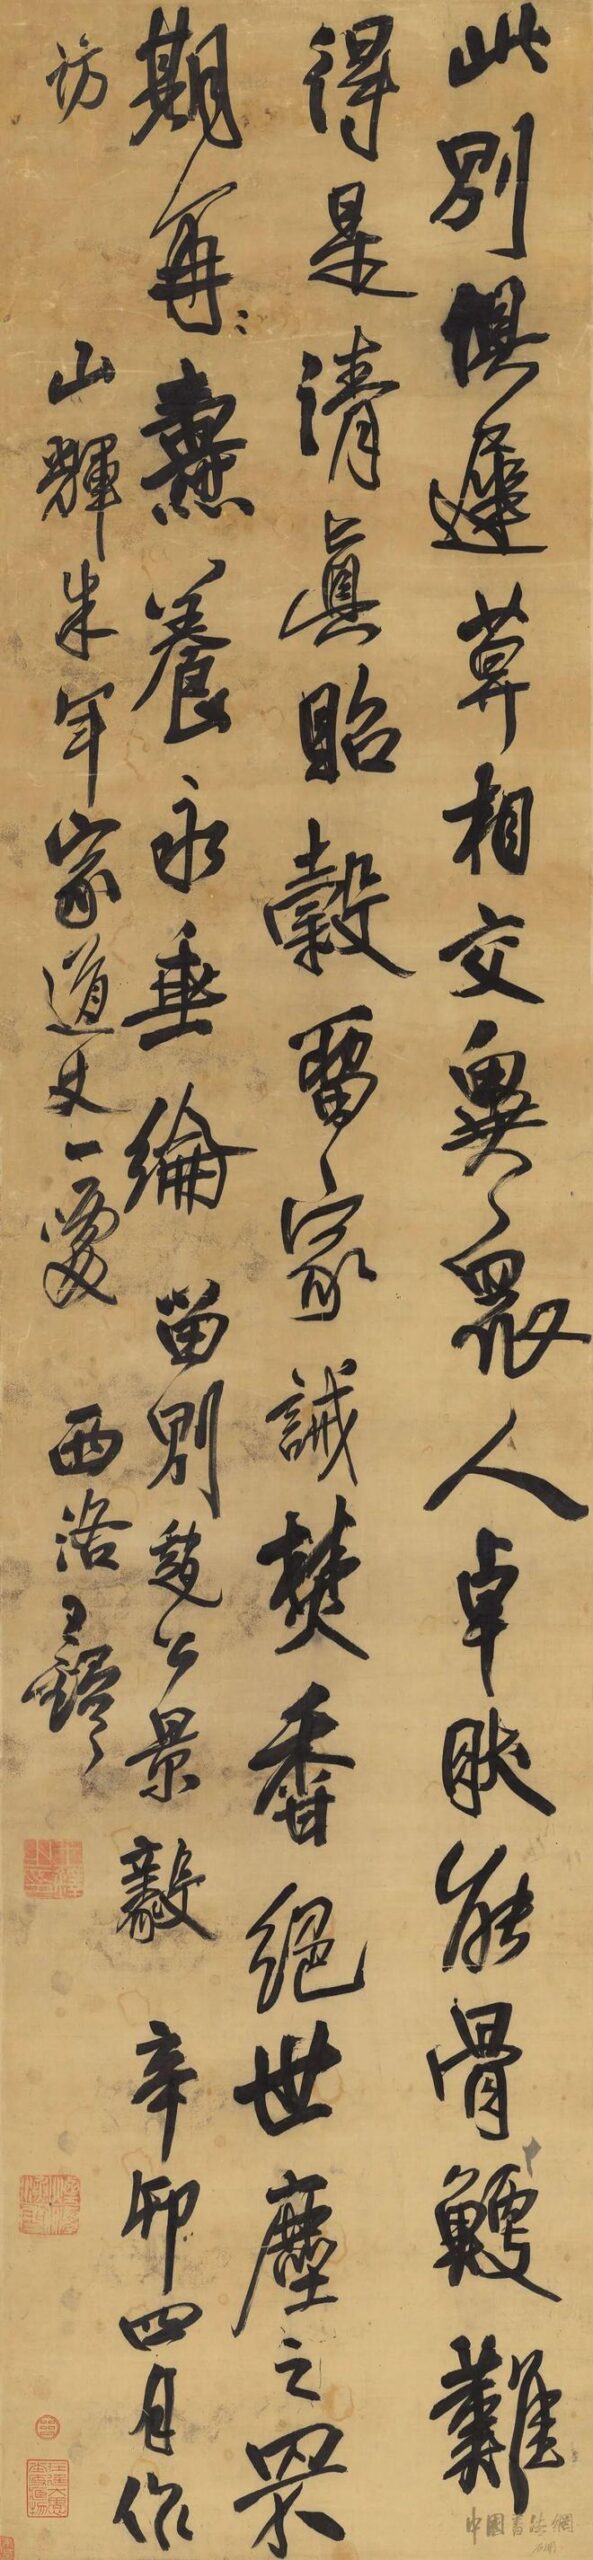 此別俱遲算相交異衆人卓然能骨鯁難
得是清真貽穀留家誡焚香絕世塵之罘
期再〻燾養永垂綸 留別 公景毅 辛卯四月作
訪
山輝朱年家道丈一笑 西洛王鐸
中國書法網